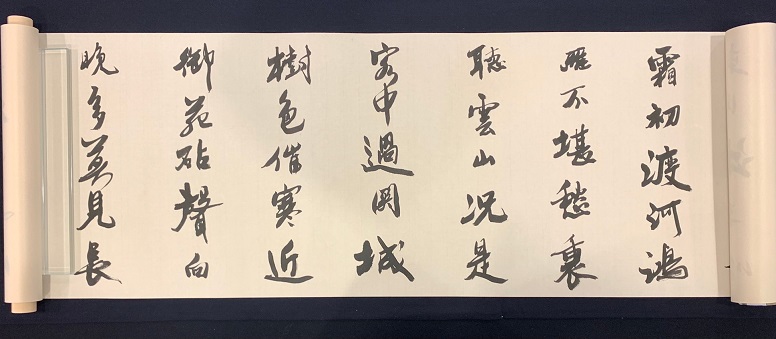 霜初渡河鴻
雁不堪愁裏
聽雲山况是
客中過關城
樹色催寒近
御苑砧聲向
晚多莫見長